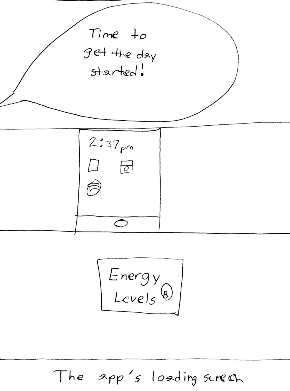 Time to
get the day
started!
2:37pm
Energy
Levels
The app's loading screen